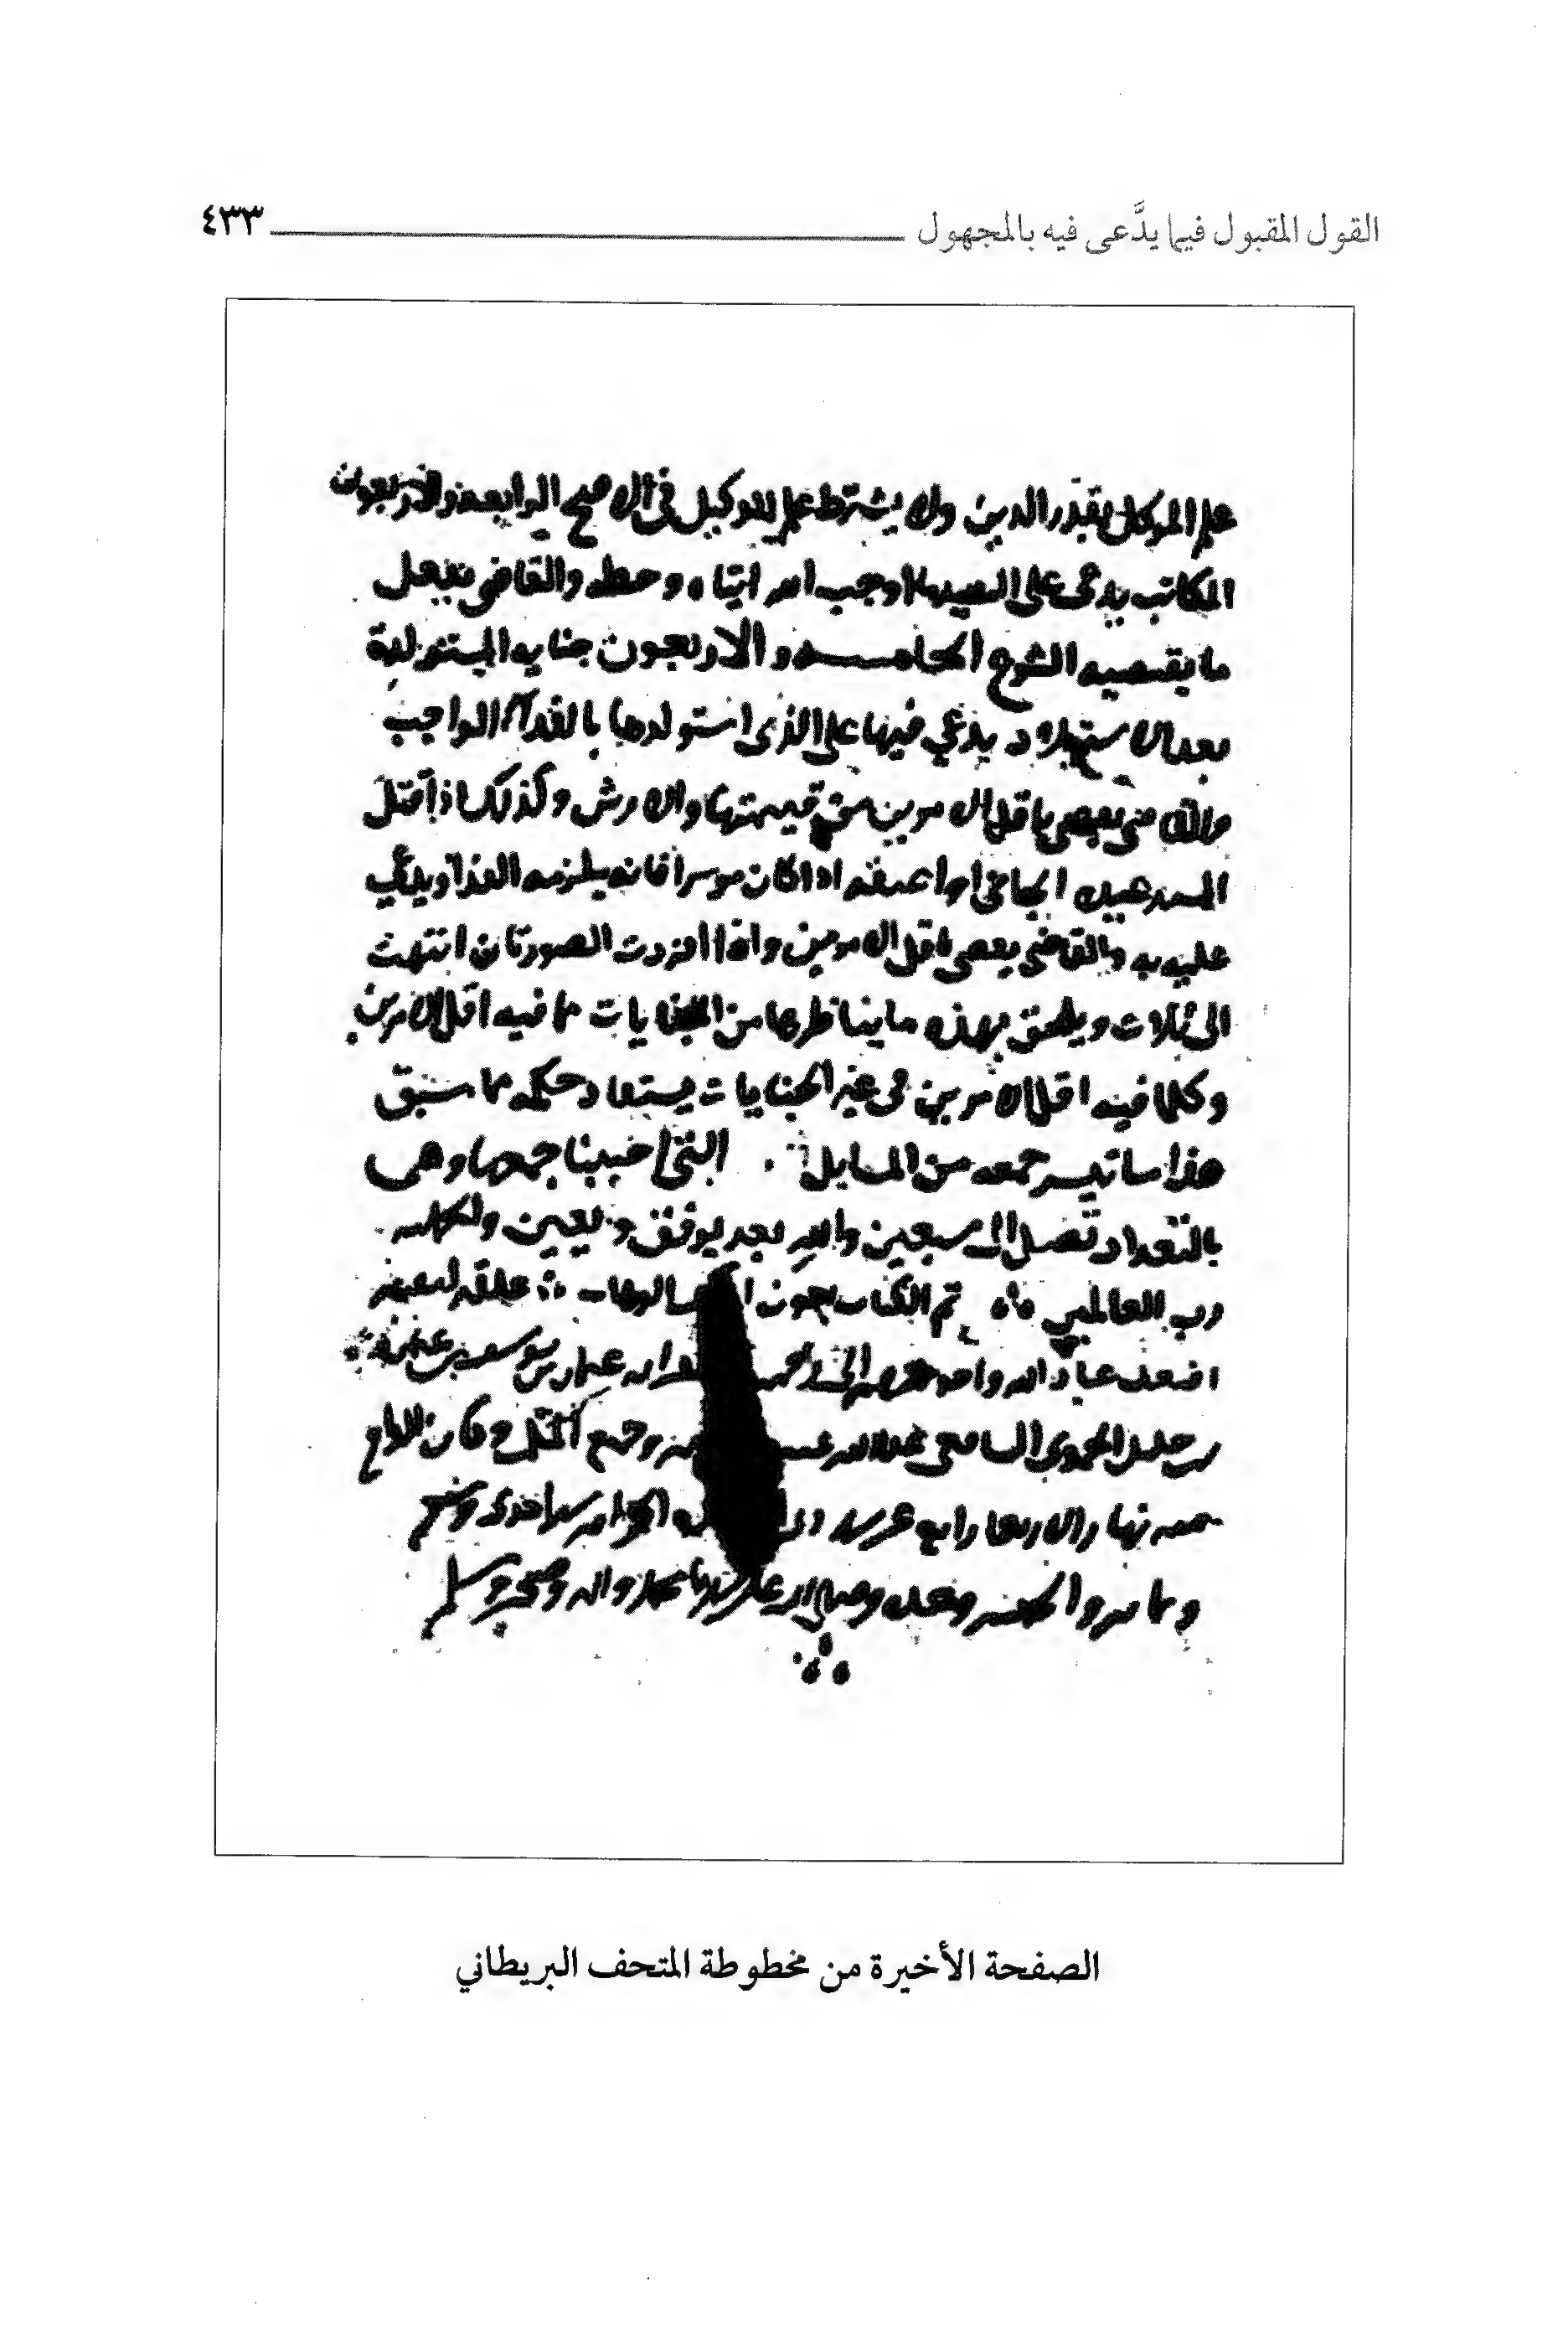 القول المقبول فيما يدَّعى فيه بالمجهول ٤٣٣
علم الموكل بقدر الدين ولا يشترط علم الوكيل في الاصح الرابعة والاربعون
المكاتب يدعي على السيد ما اوجب الله ايتاه وحطه والقاضي يفعل
ما يقتضيه الشرع الخامسة والاربعون جناية المستولدة
بعد الاستيلاد يدعي فيها على الذي استولدها بالفدا الواجب
والقاضي يقضي باقل الامرين من قيمتها والارش وكذلك اذا قتل
السيد عبده الجاني او اعتقه اذا كان موسرا فانه يلزمه الفدا ويدعي
عليه به والقاضي يقضي باقل الامرين واذا افردت الصورتان انتهت
الى ثلاث ويلحق بهذه ما يناظرها من الجنايات مما فيه اقل الامرين
وكلما فيه اقل الامرين في غير الجنايات يستفاد حكمه مما سبق
هذا ما تيسر جمعه من المسايل التي احببنا جمعها وهي
بالتعداد تصل الى سبعين والله يوفق ويعين والحمد لله
رب العالمين تم الكتاب بعون الوهاب علقه لنفسه
اضعف عباد الله
الشافعي
نهار الاربعا رابع
وثمانمايه والحمد لله وحده وصلى الله على سيدنا محمد واله وصحبه وسلم
الصفحة الأخيرة من مخطوطة المتحف البريطاني